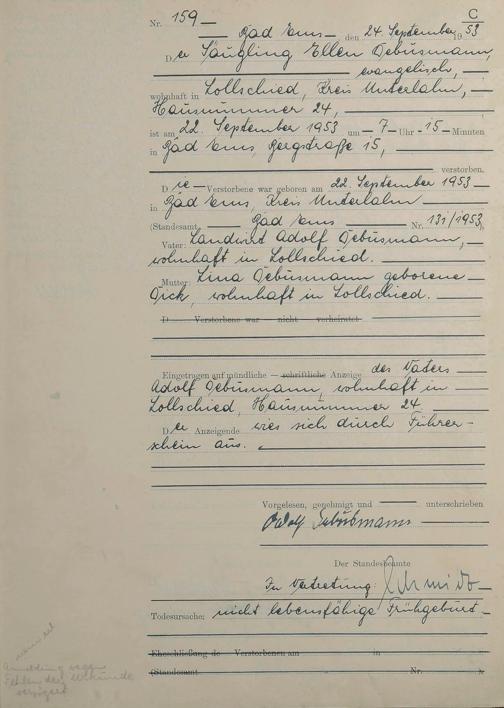 C
Nr. 159
Bad Ems, den 24. September 1953
Der Säugling Ellen Debusmann,
evangelisch,
wohnhaft in Lollschied, Kreis Unterlahn,
Hausnummer 24,
ist am 22. September 1953 um 7 Uhr 15 Minuten
in Bad Ems, Bergstraße 15,
verstorben.
Die Verstorbene war geboren am 22. September 1953
in Bad Ems, Kreis Unterlahn
(Standesamt Bad Ems Nr. 131/1953)
Vater: Landwirt Adolf Debusmann,
wohnhaft in Lollschied.
Mutter: Lina Debusmann geborene
Dick, wohnhaft in Lollschied.
D Verstorbene war nicht verheiratet
Eingetragen auf mündliche — schriftliche Anzeige des Vaters
Adolf Debusmann, wohnhaft in
Lollschied, Hausnummer 24.
Der Anzeigende wies sich durch Führer-
schein aus.
Vorgelesen, genehmigt und unterschrieben
Adolf Debusmann
Der Standesbeamte
In Vertretung:
Todesursache: nicht lebensfähige Frühgeburt
Eheschließung de Verstorbenen am in
(Standesamt Nr.